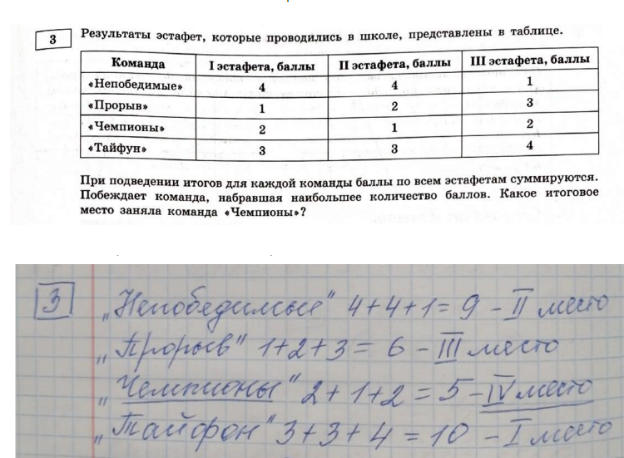 3 Результаты эстафет, которые проводились в школе, представлены в таблице.
Команда I эстафета, баллы II эстафета, баллы III эстафета, баллы
«Непобедимые» 4 4 1
«Прорыв» 1 2 3
«Чемпионы» 2 1 2
«Тайфун» 3 3 4
При подведении итогов для каждой команды баллы по всем эстафетам суммируются.
Побеждает команда, набравшая наибольшее количество баллов. Какое итоговое
место заняла команда «Чемпионы»?
3 „Непобедимые" 4+4+1=9 - II место
„Прорыв" 1+2+3= 6 - III место
„Чемпионы" 2+1+2=5-IV место
„Тайфон" 3+3+4=10 - I место